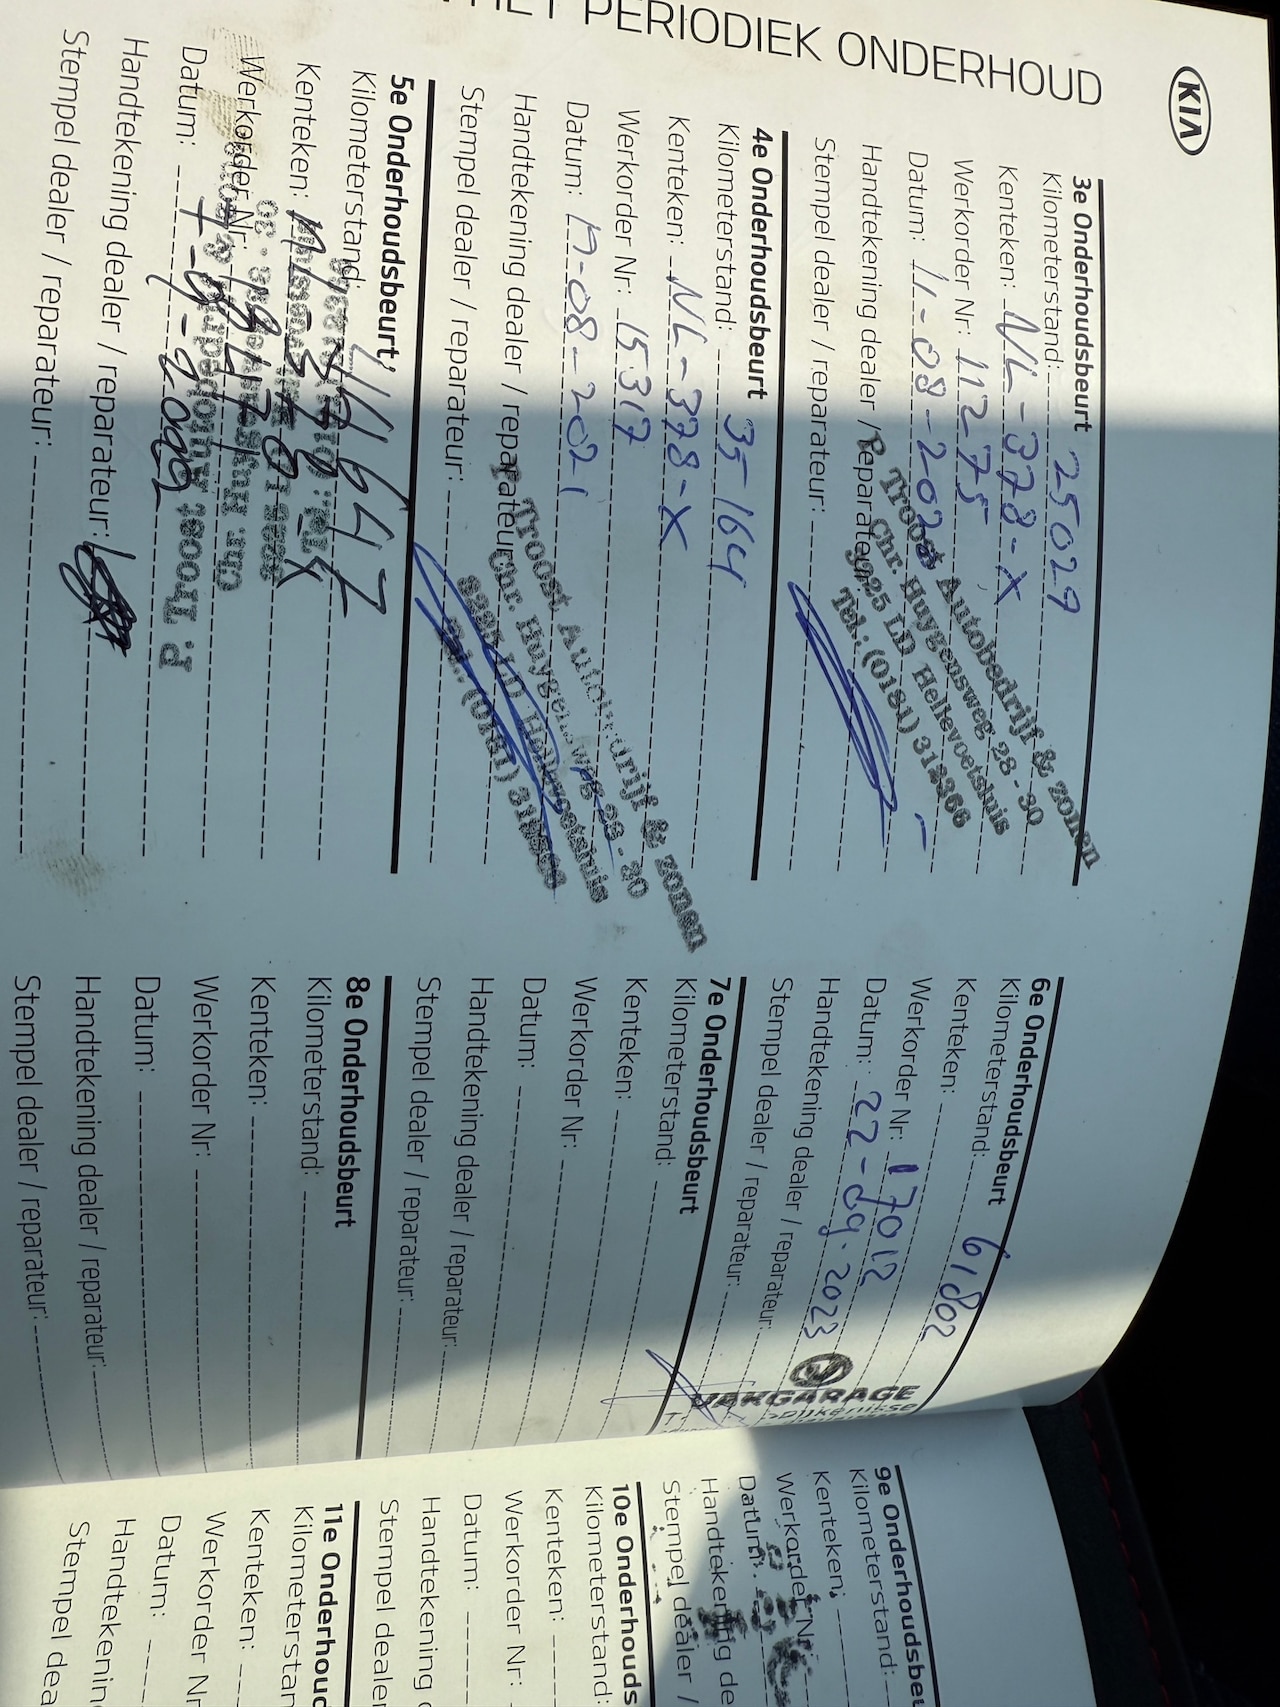 KIA
PERIODIEK ONDERHOUD
3e Onderhoudsbeurt
Kilometerstand: 25029
Kenteken: NL-378-X
Werkorder Nr: 11275
Datum: 11-08-2020
Handtekening dealer / reparateur:
Stempel dealer / reparateur:
P. Troost Autobedrijf & zonen
Chr. Huygensweg 28 - 30
3225 LD Hellevoetsluis
Tel.: (0181) 312366
4e Onderhoudsbeurt
Kilometerstand: 35164
Kenteken: NL-378-X
Werkorder Nr: 15317
Datum: 17-08-2021
Handtekening dealer / reparateur:
Stempel dealer / reparateur:
P. Troost Autobedrijf & zonen
Chr. Huygensweg 28 - 30
3225 LD Hellevoetsluis
Tel.: (0181)
5e Onderhoudsbeurt
Kilometerstand:
Kenteken:
Werkorder Nr:
Datum:
Handtekening dealer / reparateur:
Stempel dealer / reparateur:
P. Troost Autobedrijf
Chr. Huygensweg
6e Onderhoudsbeurt
Kilometerstand: 61802
Kenteken:
Werkorder Nr: 17012
Datum: 22-09-2023
Handtekening dealer / reparateur:
Stempel dealer / reparateur:
VAKGARAGE
7e Onderhoudsbeurt
Kilometerstand:
Kenteken:
Werkorder Nr:
Datum:
Handtekening dealer / reparateur:
Stempel dealer / reparateur:
8e Onderhoudsbeurt
Kilometerstand:
Kenteken:
Werkorder Nr:
Datum:
Handtekening dealer / reparateur:
Stempel dealer / reparateur:
9e Onderhoudsbeu
Kilometerstand:
Kenteken:
Werkorder Nr:
Datum:
Handtekening de
Stempel dealer /
10e Onderhouds
Kilometerstand:
Kenteken:
Werkorder Nr:
Datum:
Handtekening
Stempel dealer
11e Onderhoud
Kilometerstan
Kenteken:
Werkorder Nr
Datum:
Handtekenin
Stempel dea